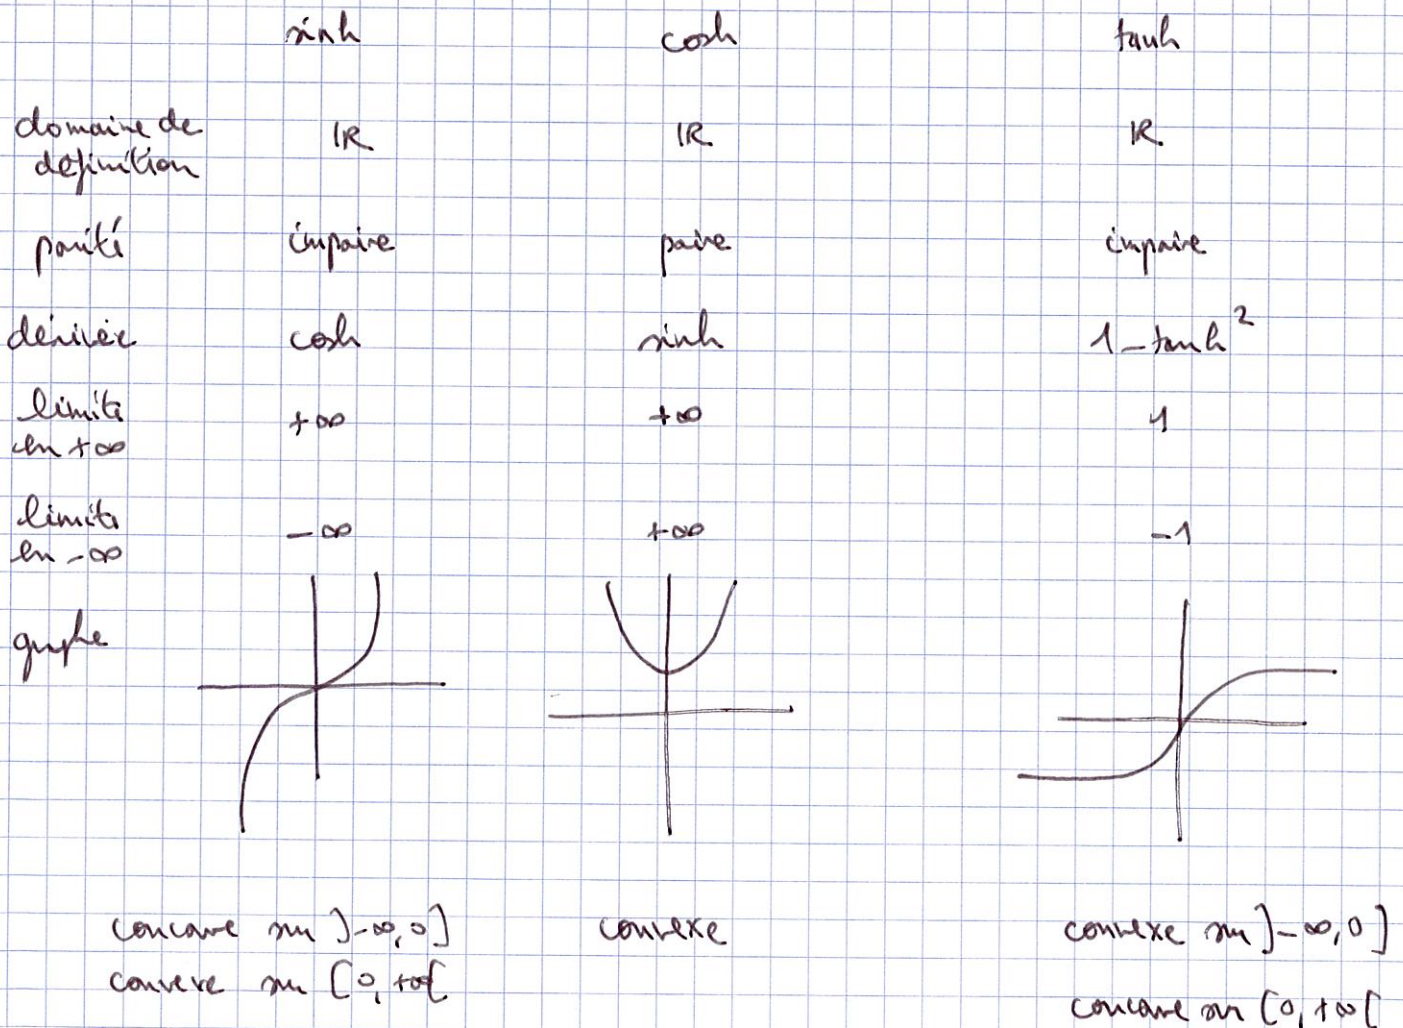 sinh cosh tanh
domaine de
définition ℝ ℝ ℝ
parité impaire paire impaire
dérivée cosh sinh 1-tanh²
limite
en +∞ +∞ +∞ 1
limite
en -∞ -∞ +∞ -1
graphe
concave sur ]-∞,0] convexe convexe sur ]-∞,0]
convexe sur [0,+∞[
concave sur [0,+∞[